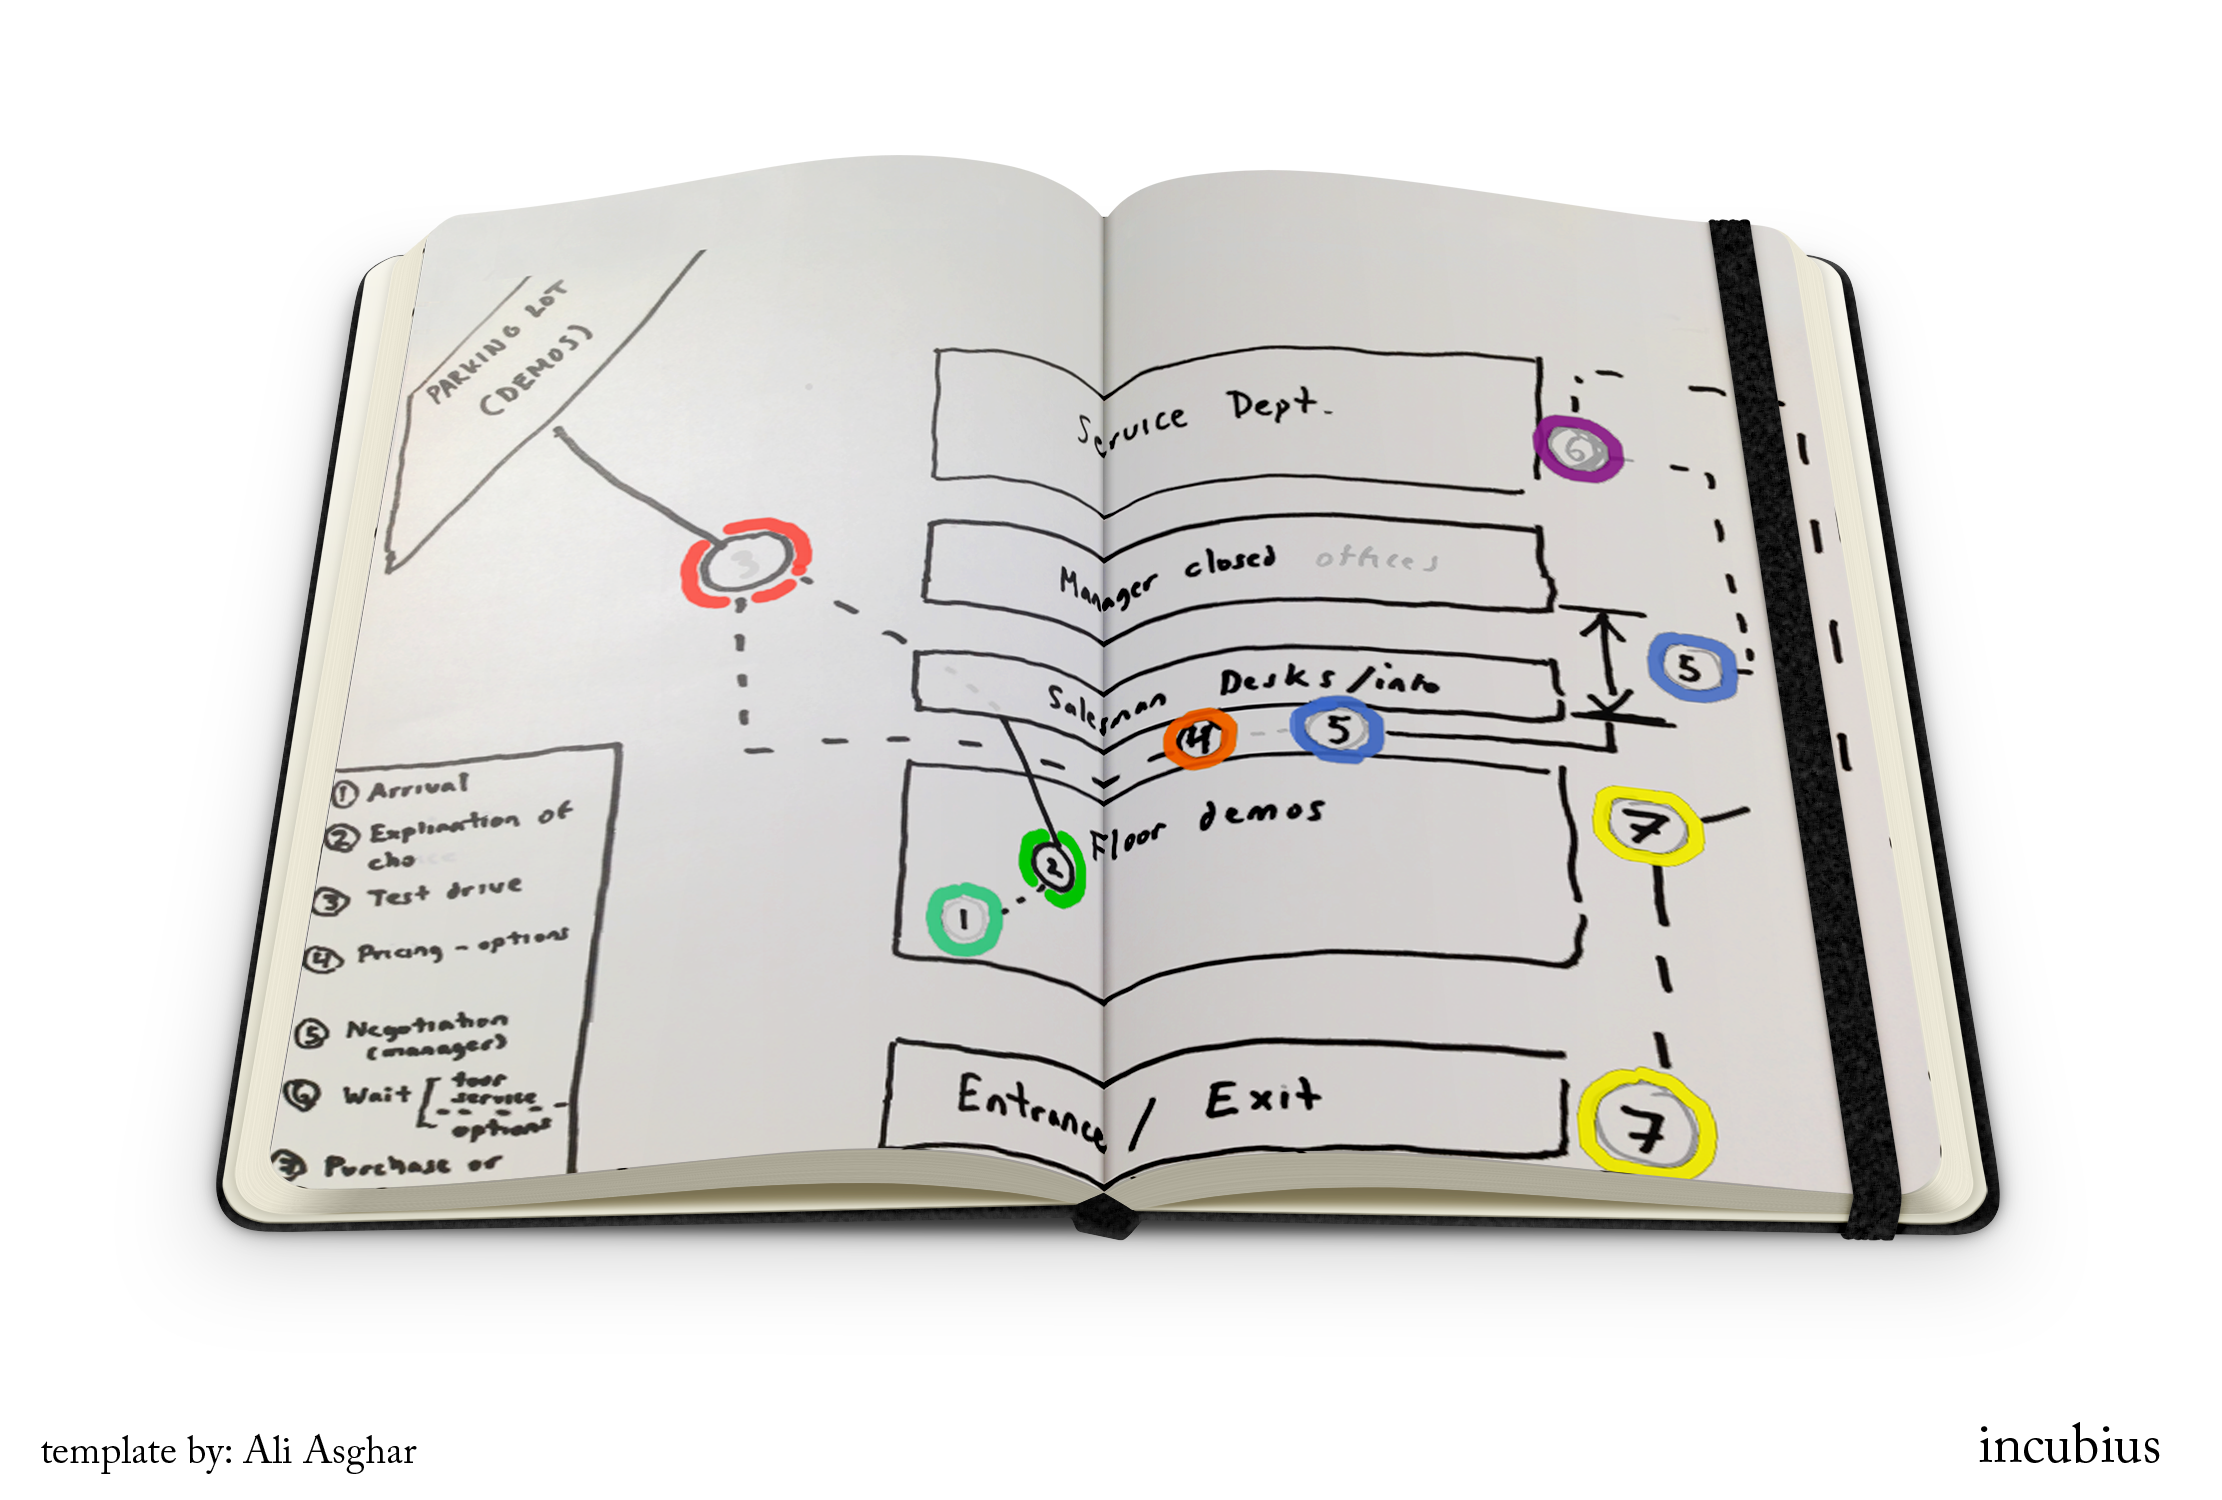 PARKING LOT
(DEMOS)
3
Service Dept.
6
Manager closed offices
5
Salesman Desks/info
4
5
Floor demos
2
1
7
Entrance / Exit
7
① Arrival
② Explination of
choice
③ Test drive
④ Pricing - options
⑤ Negotiation
(manager)
⑥ Wait [ tour
service
options
⑦ Purchase or
template by: Ali Asghar
incubius